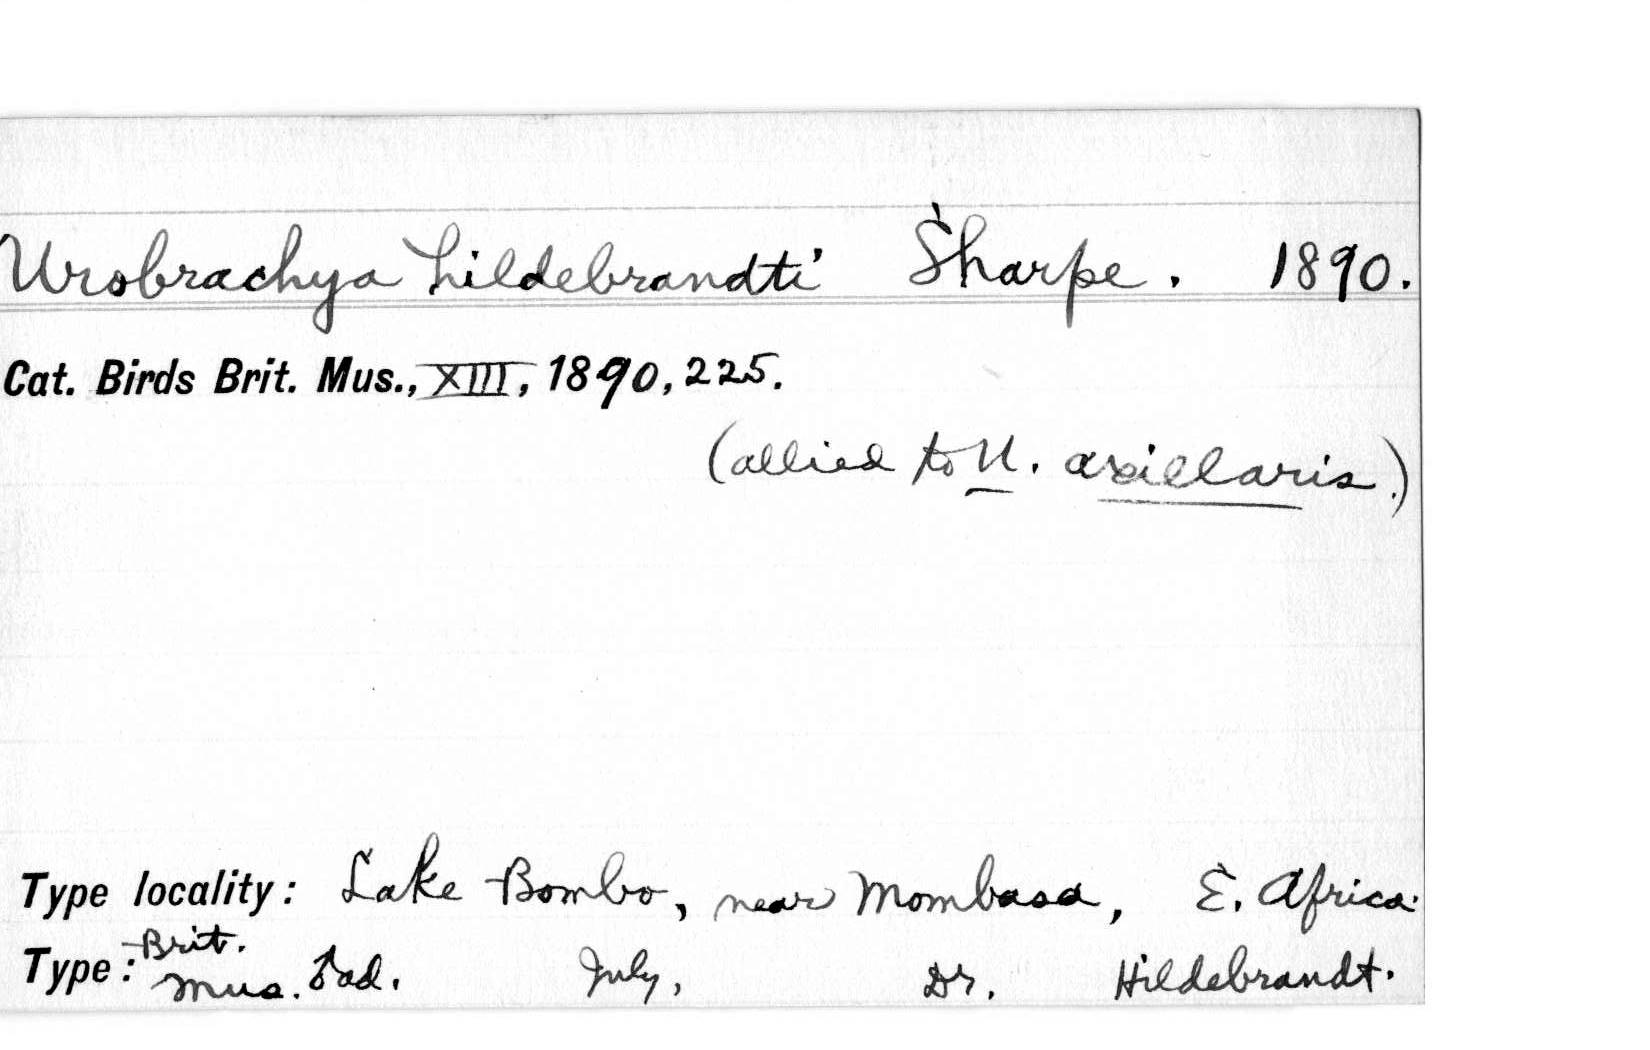 Urobrachya hildebrandti Sharpe. 1890.
Cat. Birds Brit. Mus., XIII, 1890, 225.
(allied to U. axillaris.)
Type locality: Lake Bombo, near Mombasa, E. Africa.
Type: Brit. Mus. ♂ ad. July, Dr. Hildebrandt.